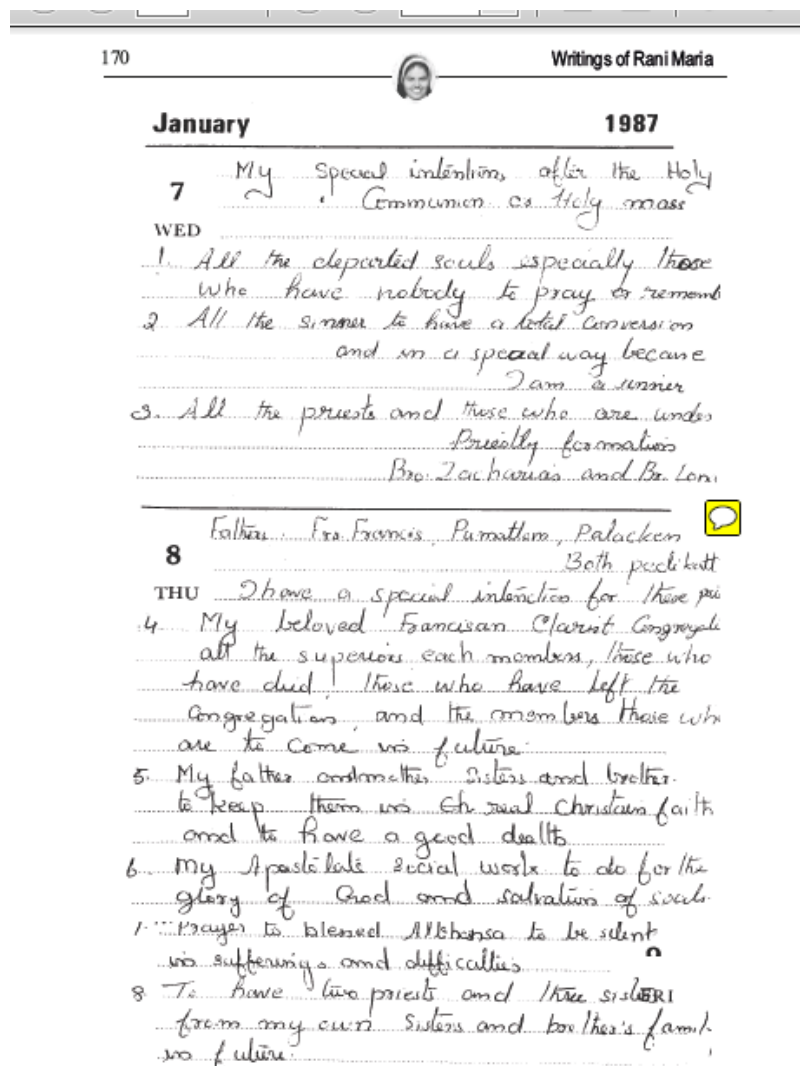 170
Writings of Rani Maria
January 1987
7 My special intentions after the Holy
Communion as Holy mass
WED
1. All the departed souls especially those
who have nobody to pray or rememb
2 All the sinner to have a total conversion
and in a special way because
I am a sinner
3. All the priests and those who are under
Priestly formation
Bro. Zacharias and Br.
Fathers. Frs. Francis, Palacken
8 Both
THU I have a special intention for these pri
4. My beloved Francisan Clarist Congregati
all the superiors each members, those who
have died, those who have left the
Congregation and the members those who
are to come in future.
5. My father andmother Sisters and brother.
to keep them in Ch real Christain faith
and to have a good death
6. My Apostolate Social work to do for the
glory of God and salvation of souls.
7. Prayer to blessed Alphonsa to be silent
in sufferings and difficulties
8 To have two priests and three sistERI
from my own Sisters and borther's famil
in future.